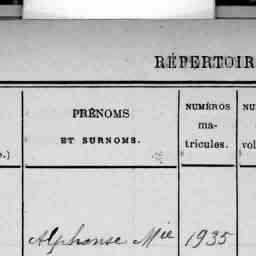 RÉPERTOIR
PRÉNOMS
ET SURNOMS.
NUMÉROS
ma-
tricules.
Alphonse Mie 1935